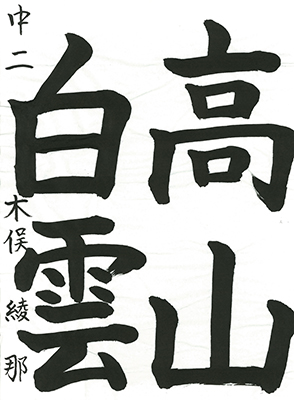 高山
白雲
中二 木俣綾那